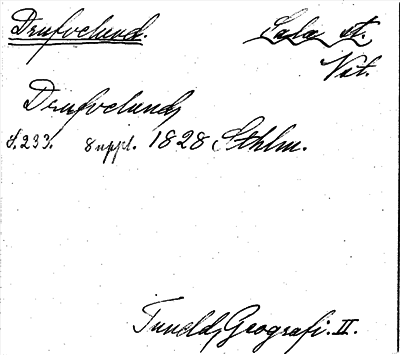 Drufvelund. Sala st.
Vst.
Drufvelund,
S. 233. Suppl. 1828 Sthlm.
Tunelds Geografi. II.